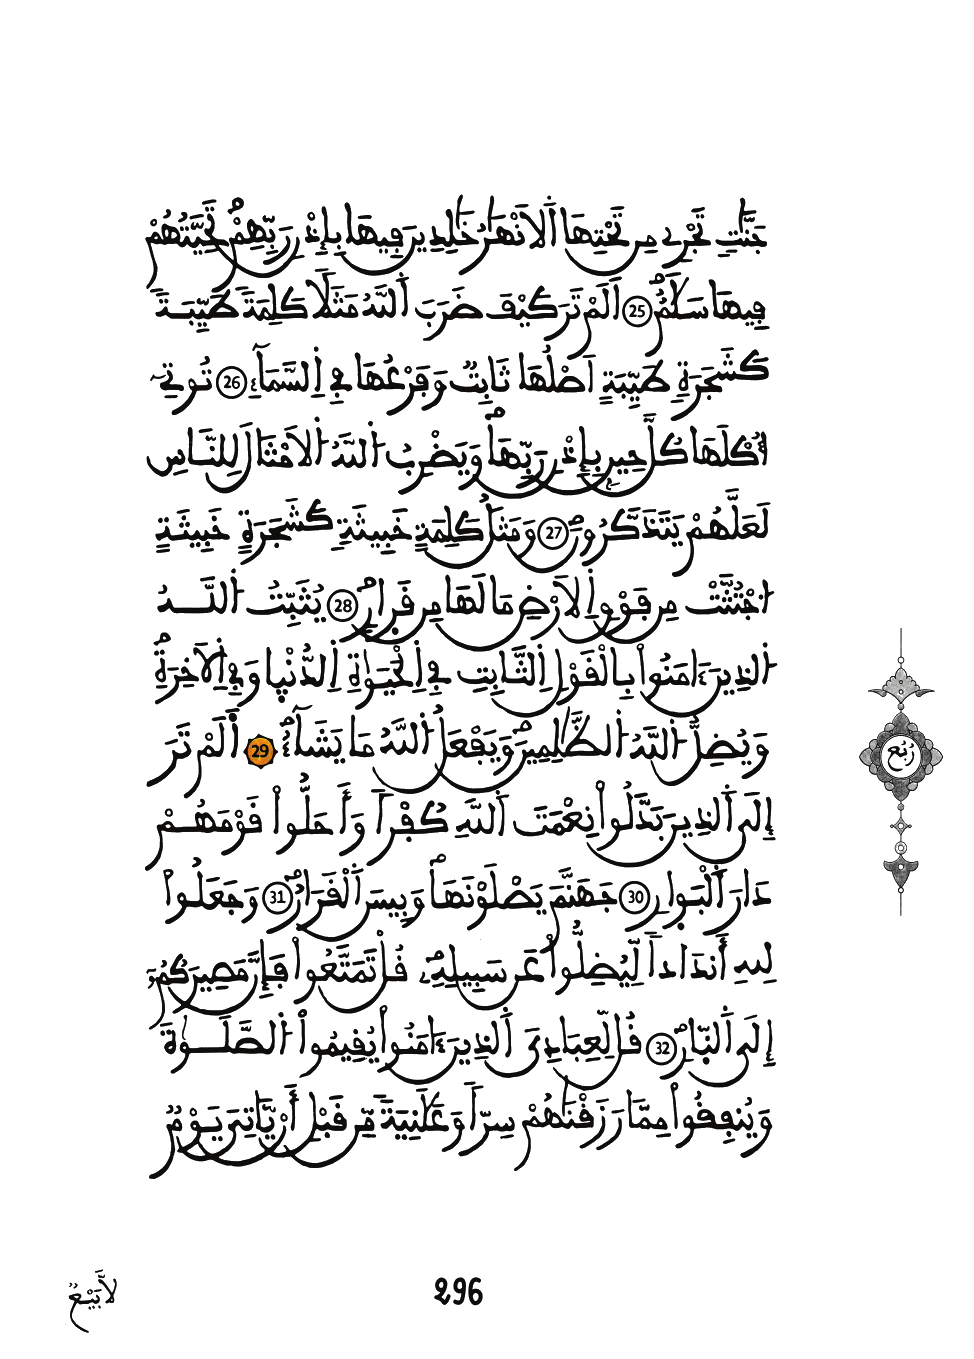 جَنَّٰتٍ تَجْرِے مِن تَحْتِهَا اَ۬لَانْهَٰرُ خَٰلِدِينَ فِيهَا بِإِذْنِ رَبِّهِمْۖ تَحِيَّتُهُمْ
فِيهَا سَلَٰمٌۖ 25 اَلَمْ تَرَ كَيْفَ ضَرَبَ اَ۬للَّهُ مَثَلاٗ كَلِمَةٗ طَيِّبَةٗ
كَشَجَرَةٖ طَيِّبَةٍ اَصْلُهَا ثَابِتٞ وَفَرْعُهَا فِے اِ۬لسَّمَآءِ 26 تُوتِےٓ
أُكْلَهَا كُلَّ حِينِۢ بِإِذْنِ رَبِّهَاۖ وَيَضْرِبُ اُ۬للَّهُ اُ۬لَامْثَالَ لِلنَّاسِ
لَعَلَّهُمْ يَتَذَكَّرُونَۖ 27 وَمَثَلُ كَلِمَةٍ خَبِيثَةٖ كَشَجَرَةٍ خَبِيثَةٍ
اِ۟جْتُثَّتْ مِن فَوْقِ اِ۬لَارْضِ مَا لَهَا مِن قَرَارٖۖ 28 يُثَبِّتُ اُ۬للَّهُ
اُ۬لذِينَ ءَامَنُواْ بِالْقَوْلِ اِ۬لثَّابِتِ فِے اِ۬لْحَيَوٰةِ اِ۬لدُّنْي۪ا وَفِے اِ۬لَاخِرَةِۖ
وَيُضِلُّ اُ۬للَّهُ اُ۬لظَّٰلِمِينَۖ وَيَفْعَلُ اُ۬للَّهُ مَا يَشَآءُۖ 29 أَلَمْ تَرَ
إِلَي اَ۬لذِينَ بَدَّلُواْ نِعْمَتَ اَ۬للَّهِ كُفْراٗ وَأَحَلُّواْ قَوْمَهُمْ
دَارَ اَ۬لْبَوَارِ 30 جَهَنَّمَ يَصْلَوْنَهَاۖ وَبِيسَ اَ۬لْقَرَارُۖ 31 وَجَعَلُواْ
لِلهِ أَندَاداٗ لِّيُضِلُّواْ عَن سَبِيلِهِۦۖ قُلْ تَمَتَّعُواْ فَإِنَّ مَصِيرَكُمُۥٓ
إِلَي اَ۬لنّ۪ارِۖ 32 قُل لِّعِبَادِيَ اَ۬لذِينَ ءَامَنُواْ يُقِيمُواْ اُ۬لصَّلَوٰةَ
وَيُنفِقُواْ مِمَّا رَزَقْنَٰهُمْ سِرّاٗ وَعَلَٰنِيَةٗ مِّن قَبْلِ أَنْ يَّاتِيَ يَوْمٞ
رُبُع
لَّا بَيْعٞ
296